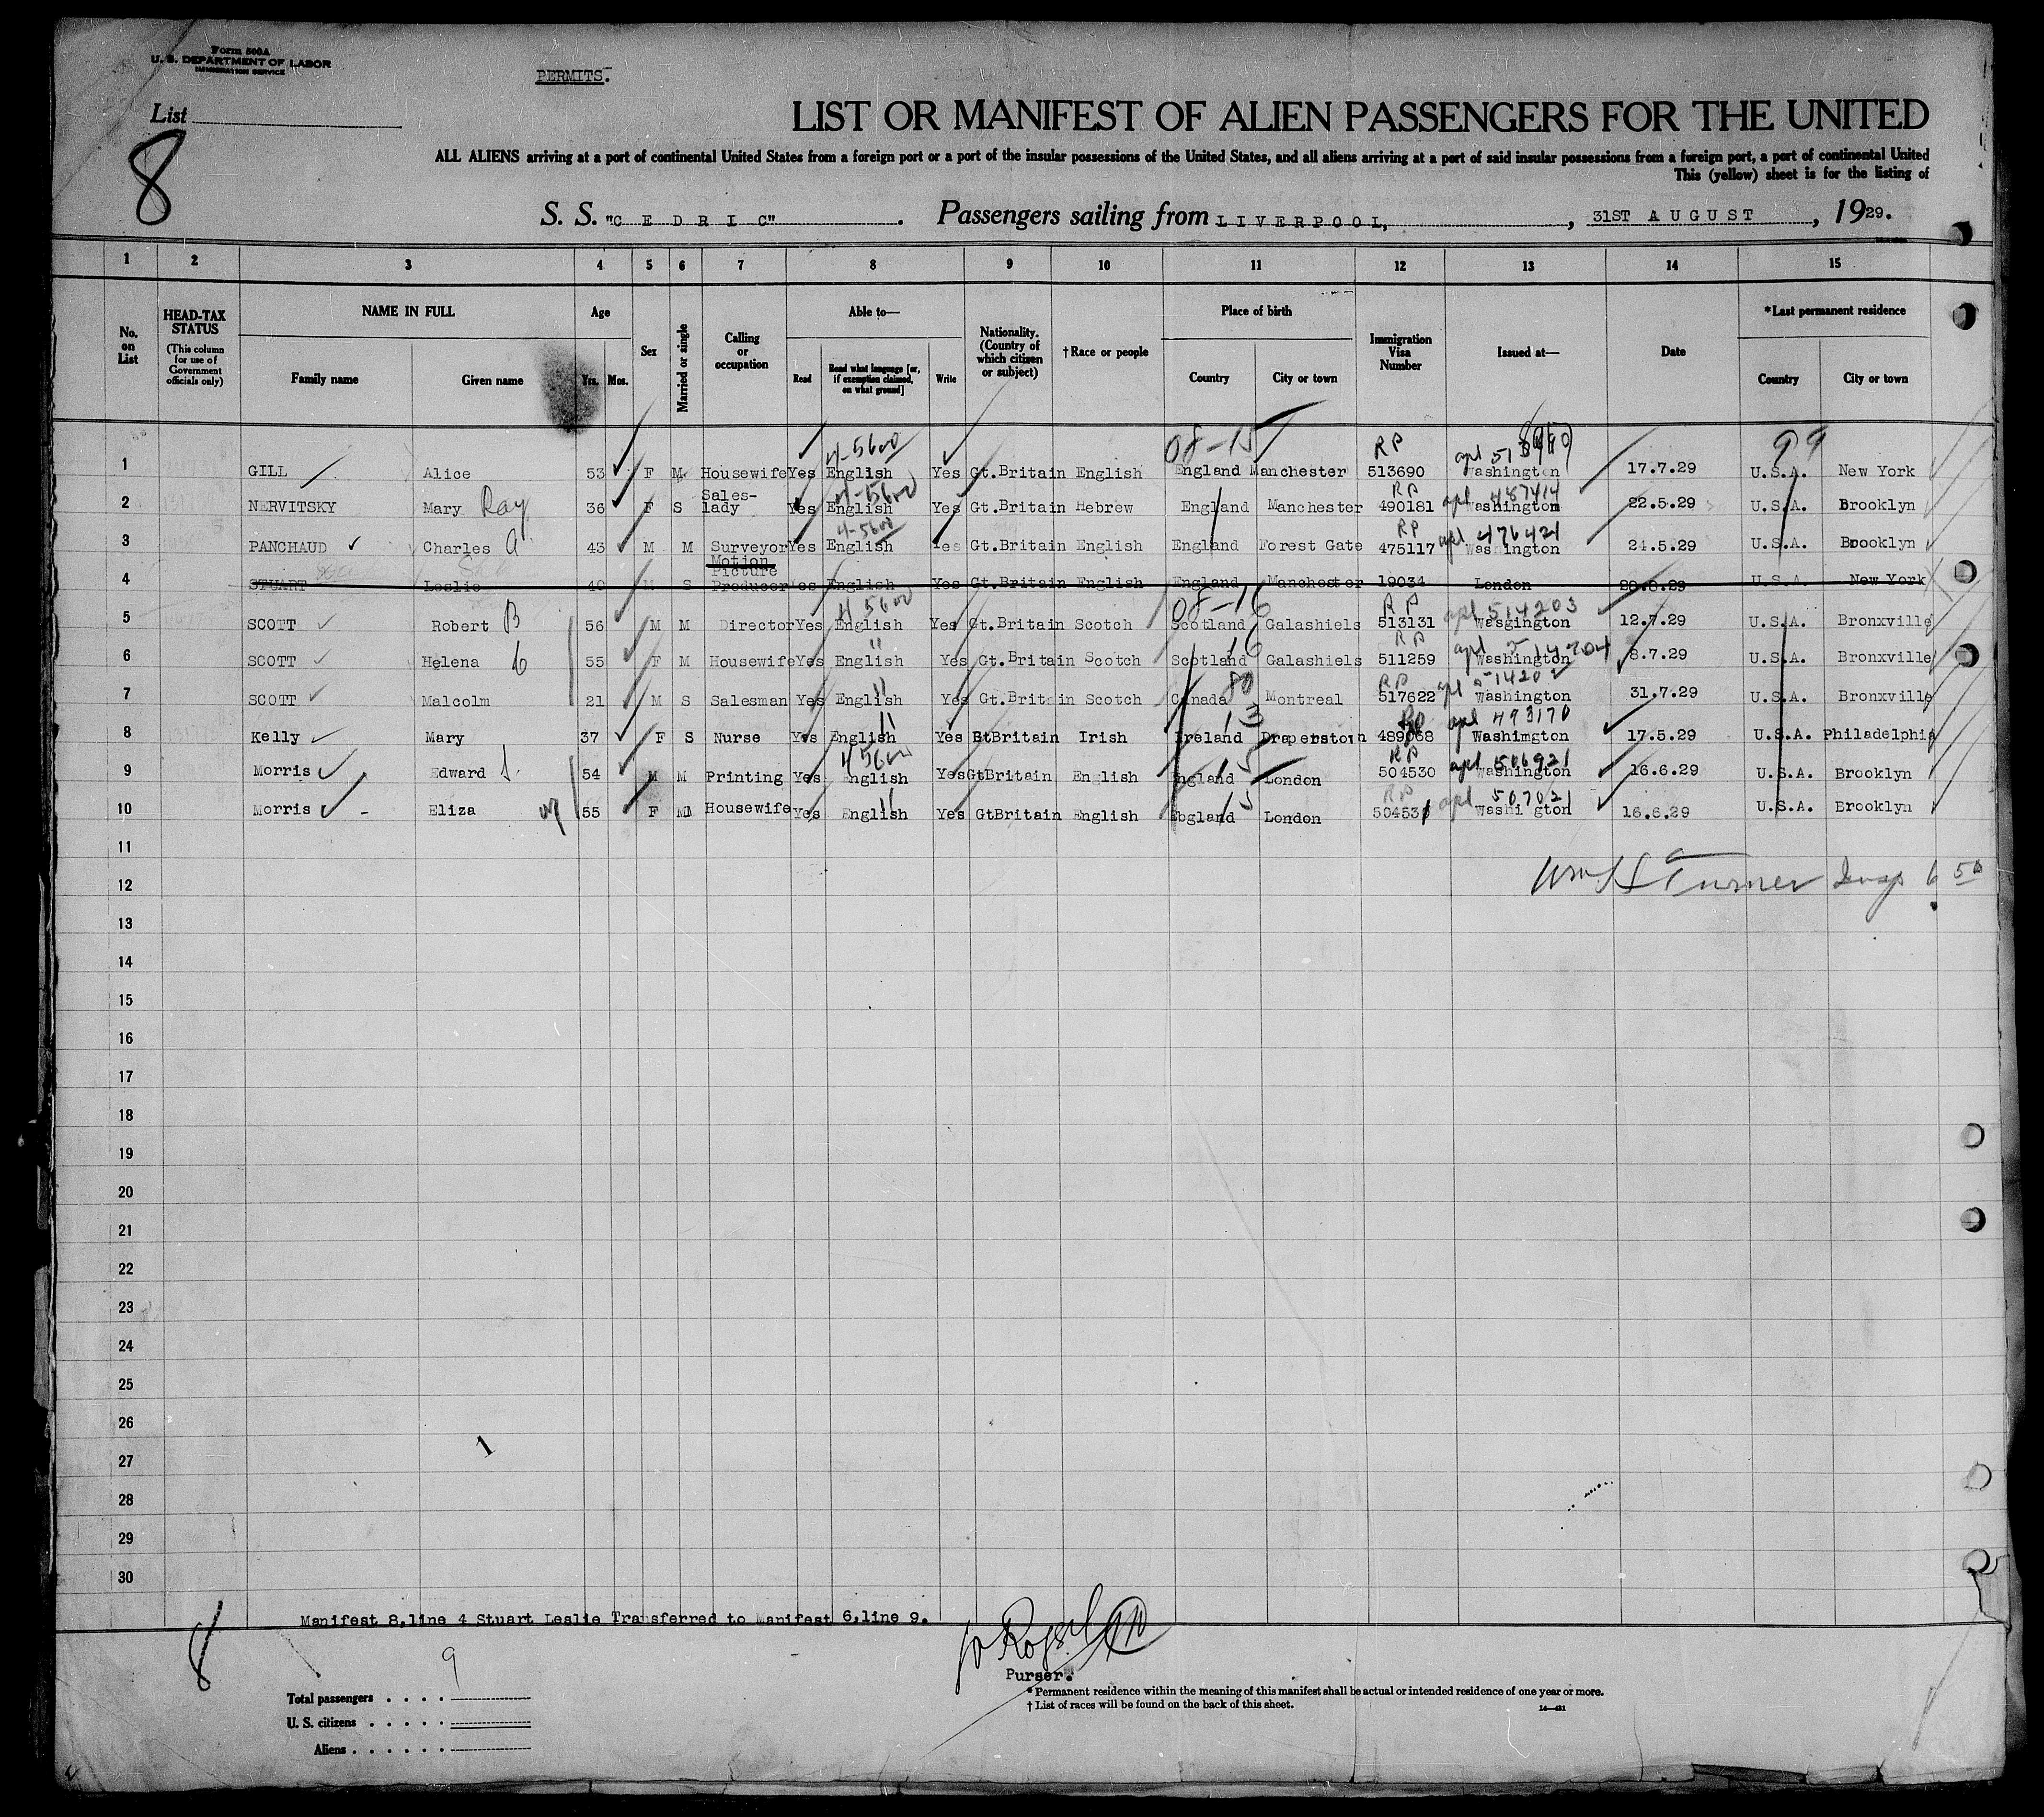 Form 500A
U. S. DEPARTMENT OF LABOR
IMMIGRATION SERVICE
PERMITS.
List
8
LIST OR MANIFEST OF ALIEN PASSENGERS FOR THE UNITED
ALL ALIENS arriving at a port of continental United States from a foreign port or a port of the insular possessions of the United States, and all aliens arriving at a port of said insular possessions from a foreign port, a port of continental United
This (yellow) sheet is for the listing of
S. S. "C E D R I C" . Passengers sailing from LIVERPOOL, , 31ST AUGUST , 1929.
1 2 3 4 5 6 7 8 9 10 11 12 13 14 15
No. on List
HEAD-TAX STATUS (This column for use of Government officials only)
NAME IN FULL Family name Given name
Age Yrs. Mos.
Sex
Married or single
Calling or occupation
Able to— Read Read what language [or, if exemption claimed, on what ground] Write
Nationality. (Country of which citizen or subject)
† Race or people
Place of birth Country City or town
Immigration Visa Number
Issued at—
Date
*Last permanent residence Country City or town
4-5600 08-15 RP 99
1 GILL Alice 53 F M Housewife Yes English Yes Gt.Britain English England Manchester 513690 Washington 17.7.29 U.S.A. New York
4-5600 RP apl 487414
2 NERVITSKY Mary Ray 36 F S Sales-lady Yes English Yes Gt.Britain Hebrew England Manchester 490181 Washington 22.5.29 U.S.A. Brooklyn
4-5600 RP apl 476421
3 PANCHAUD Charles A 43 M M Surveyor Yes English Yes Gt.Britain English England Forest Gate 475117 Washington 24.5.29 U.S.A. Brooklyn
4 STUART Leslie 40 M S Motion Picture Producer Yes English Yes Gt.Britain English England Manchester 19034 London 28.8.29 U.S.A. New York
4 5600 08-16 RP apl 514203
5 SCOTT Robert B 56 M M Director Yes English Yes Gt.Britain Scotch Scotland Galashiels 513131 Wasgington 12.7.29 U.S.A. Bronxville
" 16 RP apl 514204
6 SCOTT Helena C 55 F M Housewife Yes English Yes Gt.Britain Scotch Scotland Galashiels 511259 Washington 8.7.29 U.S.A. Bronxville
" 80 RP apl 514202
7 SCOTT Malcolm 21 M S Salesman Yes English Yes Gt.Britain Scotch Canada Montreal 517622 Washington 31.7.29 U.S.A. Bronxville
" 13 RP apl 493170
8 Kelly Mary 37 F S Nurse Yes English Yes GtBritain Irish Ireland Draperstown 489068 Washimgton 17.5.29 U.S.A. Philadelphia
4 5600 15 RP apl 506921
9 Morris Edward J. 54 M M Printing Yes English Yes GtBritain English England London 504530 Washington 16.6.29 U.S.A. Brooklyn
" 15 RP apl 507021
10 Morris Eliza 55 F M Housewife Yes English Yes GtBritain English Ebgland London 504531 Washi gton 16.6.29 U.S.A. Brooklyn
11
12 Wm S Turner Insp 6 50
13
14
15
16
17
18
19
20
21
22
23
24
25
26
27
28
29
30
Manifest 8,line 4 Stuart Leslie Transferred to Manifest 6,line 9.
8
9
Purser.
Total passengers
U. S. citizens
Aliens
* Permanent residence within the meaning of this manifest shall be actual or intended residence of one year or more.
† List of races will be found on the back of this sheet.